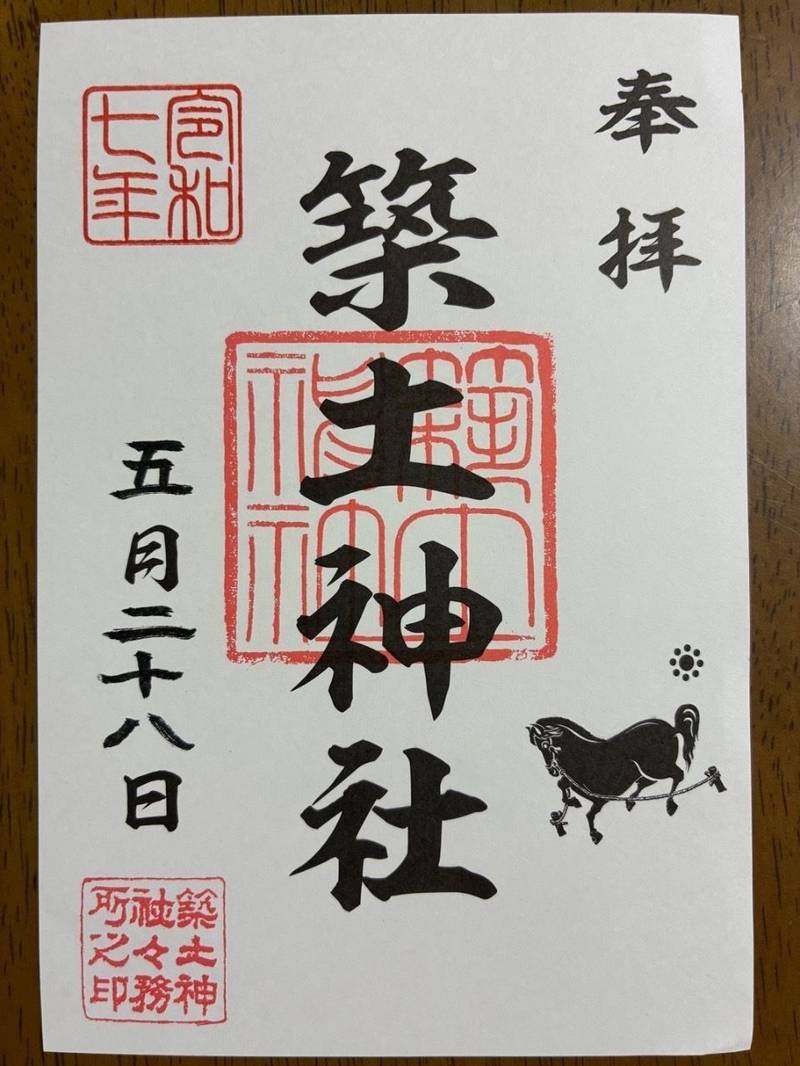 奉拝
築土神社
令和
七年
五月二十八日
築土神
社々務
所之印
築土
神社